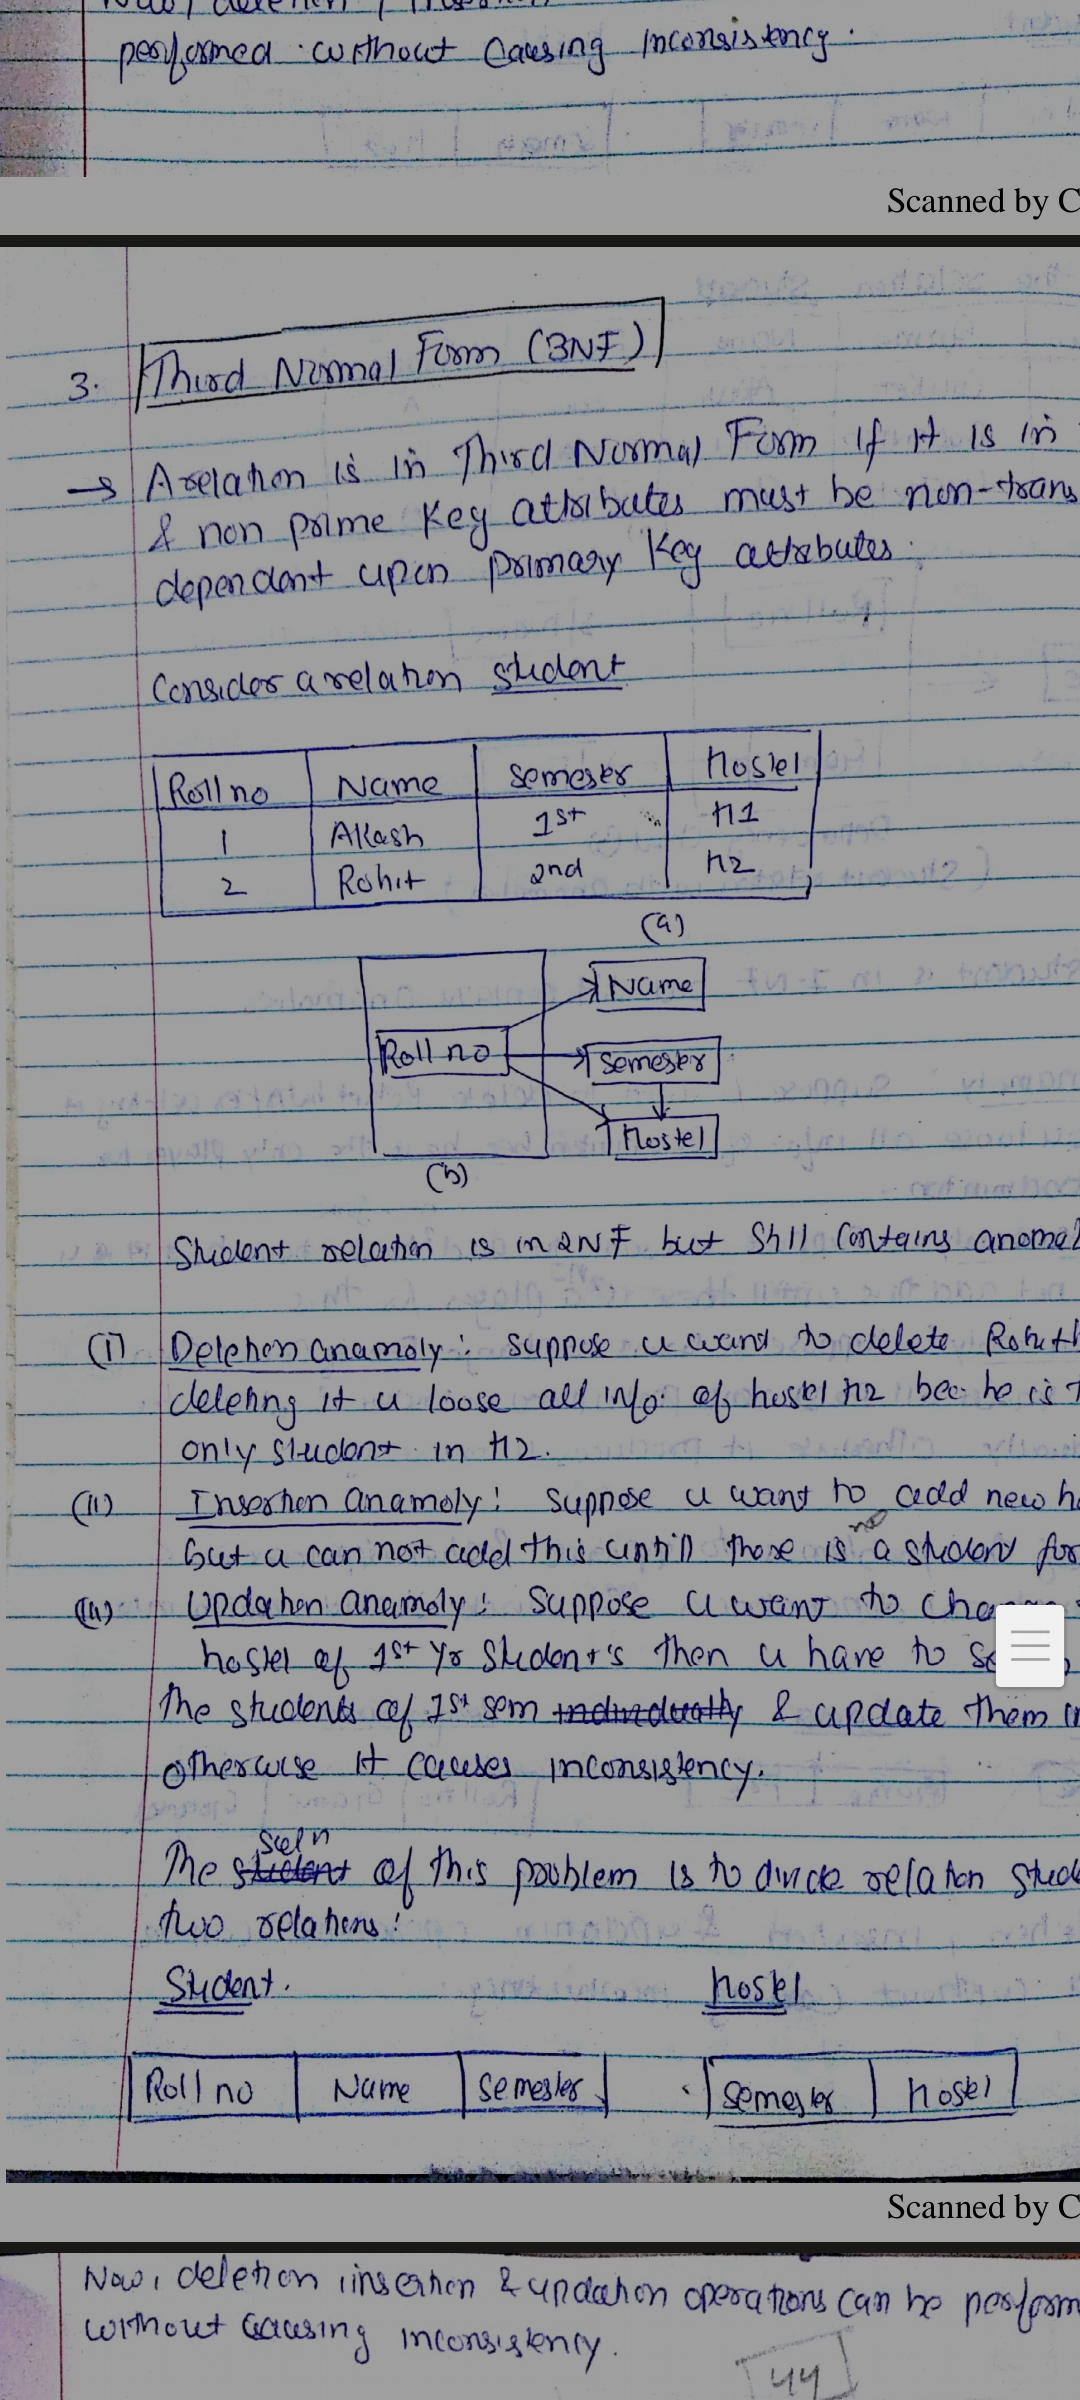 performed without causing inconsistency.
Scanned by C
3. Third Normal Form (3NF)
→ A relation is in Third Normal Form if it is in
& non prime key attributes must be non-trans
dependent upon primary key attributes.
Consider a relation student
Roll no Name Semester Hostel
1 Akash 1st H1
2 Rohit 2nd H2
(a)
Name
Roll no Semester
Hostel
(b)
Student relation is in 2NF but still contains anomal
(i) Deletion anamoly: suppose u want to delete
deleting it u loose all info. of hostel H2 bec. he is
only student in H2.
(ii) Insertion anamoly: suppose u want to add new h
but u can not add this untill there is no a student for
Updation anamoly: suppose u want to cha
hostel of 1st yr student's then u have to
the students of 1st sem individually & update them
otherwise it causes inconsistency.
The student soln of this problem is to divide relation stud
two relations:
Student. Hostel
Roll no Name Semester Semester Hostel
Scanned by C
Now, deletion, insertion & updation operations can be perform
without causing inconsistency.
44